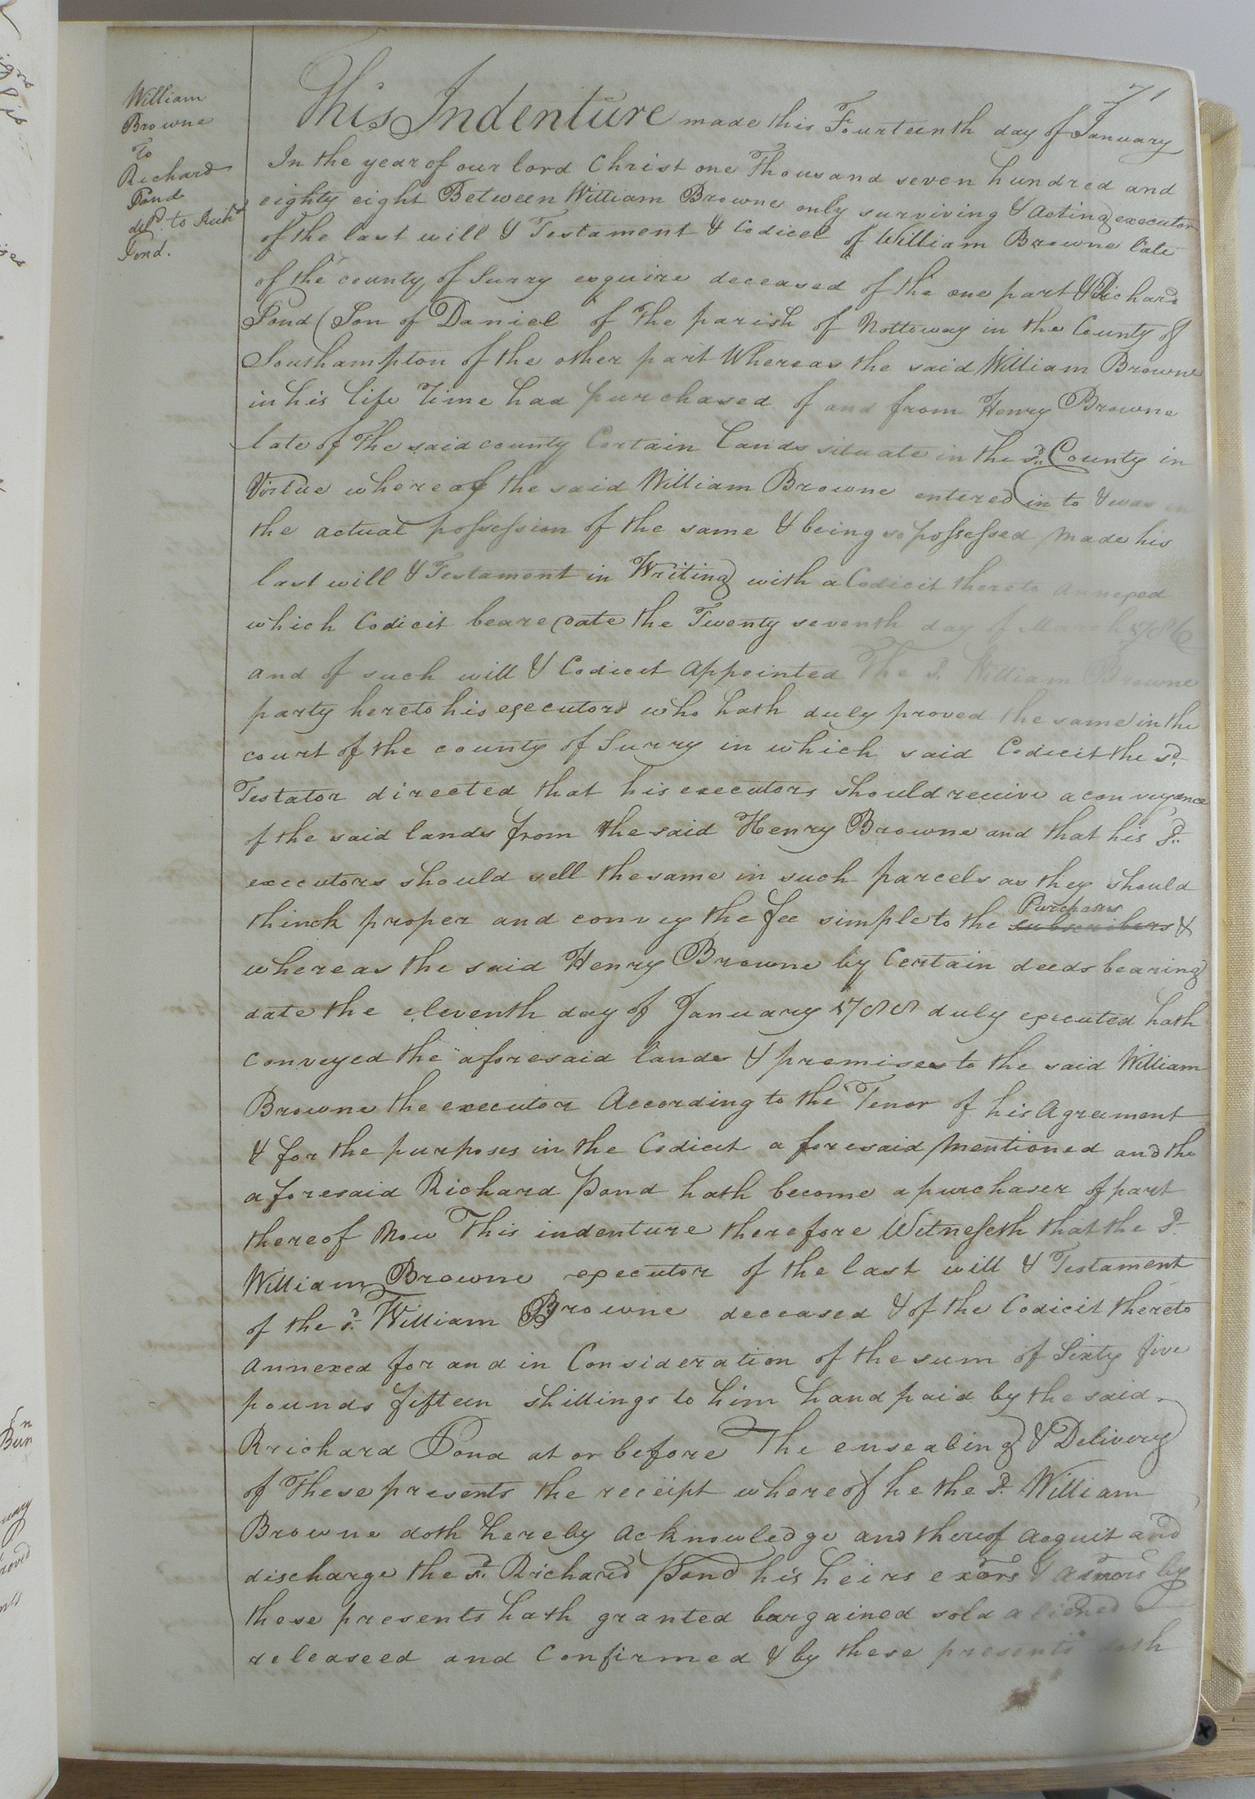 71
William
Browne
To
Richard
Pond
del.d to Rich.d
Pond.
This Indenture made this Fourteenth day of January
In the year of our lord Christ one Thousand seven hundred and
eighty eight Between William Browne only surviving & acting executor
of the last will & Testament & Codicel of William Browne late
of the county of Surry esquire deceased of the one part & Richard
Pond (Son of Daniel of the parish of Nottoway in the County of
Southampton of the other part Whereas the said William Browne
in his life Time had purchased of and from Henry Browne
late of the said county Certain lands situate in the s.d County in
Virtue whereof the said William Browne entered in to & was in
the actual possession of the same & being so possessed made his
last will & Testament in Writing with a Codicit thereto annexed
which Codicit beare date the Twenty seventh day of March 1786
and of such will & Codicit appointed The s. William Browne
party hereto his executors who hath duly proved the same in the
court of the county of Surry in which said Codicit the s.d
Testator directed that his executors should receive a conveyance
of the said lands from the said Henry Browne and that his s.d
executors should sell the same in such parcels as they should
think proper and convey the fee simple to the subscribers Purchasers &
whereas the said Henry Browne by Certain deeds bearing
date the eleventh day of January 1788 duly executed hath
conveyed the aforesaid lands & premises to the said William
Browne the executor According to the Tenor of his Agreement
& for the purposes in the Codicit a foresaid mentioned and the
aforesaid Richard Pond hath become a purchaser of part
thereof Now This indenture therefore Witnesseth that the s.d
William Browne executor of the last will & Testament
of the s.d William Browne deceased & of the Codicit thereto
annexed for and in Consideration of the sum of Sixty five
pounds fifteen shillings to him hand paid by the said
Rrichard Pond at or before The ensealing & Delivery
of These presents the receipt whereof he the s.d William
Browne doth hereby acknowledge and thereof acquit and
discharge the s.d Richard Pond his heirs exors & admors by
these presents hath granted bargained sold aliened
releaseed and Confirmed & by these presents doth